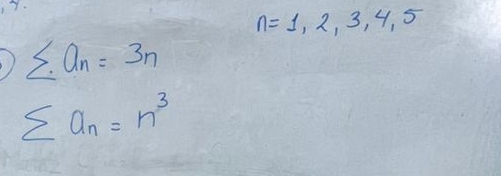 n = 1, 2, 3, 4, 5
∑ aₙ = 3n
∑ aₙ = n³